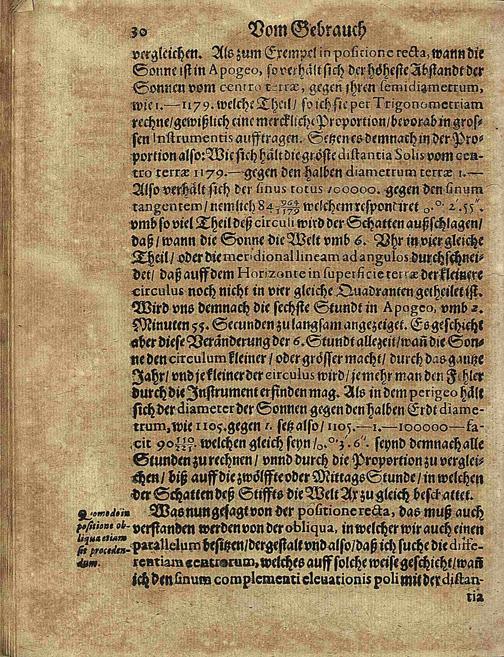 30 Vom Gebrauch
vergleichen. Als zum Exempel in positione recta, wann die
Sonne ist in Apogeo, so verhält sich der höheste Abstandt der
Sonnen vom centro terræ, gegen jhren semidiametrum,
wie 1.—1179. welche Theil / so ich sie per Trigonometriam
rechne / gewißlich eine merckliche Proportion / bevorab in gros-
sen Instrumentis aufftragen. Setzen es demnach in der Pro-
portion also: Wie sich hält die gröste distantia Solis vom cen-
tro terræ 1179.—gegen den halben diametrum terræ 1.—
Also verhält sich der sinus totus 100000. gegen den sinum
tangentem / nemlich 84 964/1179 welchem respondiret 0. 0. 2. 55″.
vmb so viel Theil deß circuli wird der Schatten außschlagen /
daß / wann die Sonne die Welt vmb 6. Vhr in vier gleiche
Theil / oder die meridional lineam ad angulos durchschnei-
det / daß auff dem Horizonte in superficie terræ der kleinere
circulus noch nicht in vier gleiche Quadranten getheilet ist.
Wird vns demnach die sechste Stundt in Apogeo, vmb 2.
Minuten 55. Secunden zu langsam angezeiget. Es geschicht
aber diese Veränderung der 6. Stundt allezeit / wañ die Son-
ne den circulum kleiner / oder grösser macht / durch das gantze
Jahr / vnd je kleiner der circulus wird / je mehr man den Fehler
durch die Instrument erfinden mag. Als in dem perigeo hält
sich der diameter der Sonnen gegen den halben Erdt diame-
trum, wie 1105. gegen 1. setz also / 1105.—1.—100000—fa-
cit 90 welchen gleich seyn / 0. 0 3. 6″. seynd demnach alle
Stunden zu rechnen / vnnd durch die Proportion zu verglei-
chen / biß auff die zwölffte oder Mittags Stunde / in welchen
der Schatten deß Stiffts die Welt Ax zu gleich beschattet.
Was nun gesagt von der positione recta, das muß auch
verstanden werden von der obliqua, in welcher wir auch einen
parallelum besitzen / dergestalt vnd also / daß ich suche die diffe-
rentiam centrorum, welches auff solche weise geschicht / wañ
ich den sinum complementi elevationis poli mit der distan-
tia
Quomodo in
positione ob-
liqua etiam
sit proceden-
dum.